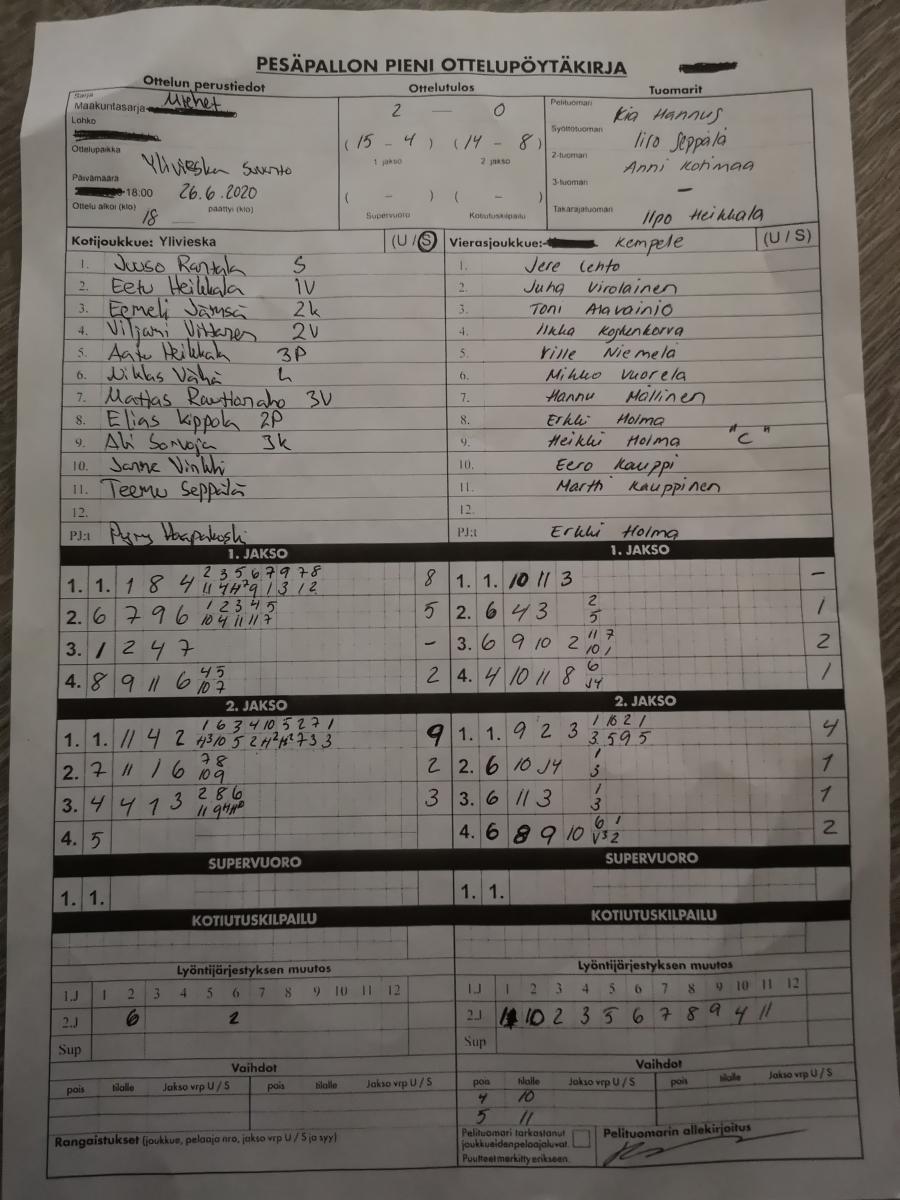 PESÄPALLON PIENI OTTELUPÖYTÄKIRJA
Ottelun perustiedot Ottelutulos Tuomarit
Sarja
Maakuntasarja Miehet
Lohko
Ottelupaikka
Ylivieska
Päivämäärä
18:00 26.6.2020
Ottelu alkoi (klo) 18 päättyi (klo)
2 — 0
( 15 - 4 ) ( 14 - 8 )
1 jakso 2 jakso
( - ) ( - )
Supervuoro Kotiutuskilpailu
Pelituomari Kia Hannus
Syöttötuomari Iiro Seppälä
2-tuomari Anni Kotimaa
3-tuomari –
Takarajatuomari Ilpo Heikkala
Kotijoukkue: Ylivieska (U / S)
1. Juuso Rantala S
2. Eetu Heikkala 1V
3. Eemeli Jämsä 2k
4. Viljami 2V
5. Aatu Heikkala 3P
6. Niklas Vähä L
7. Matias Rautianaho 3V
8. Elias Kippola 2P
9. Ali Sorvoja 3k
10. Janne Vinkki
11. Teemu Seppälä
12.
PJ:t Pyry Haapakoski
Vierasjoukkue: Kempele (U / S)
1. Jere Lehto
2. Juha Virolainen
3. Toni Alavainio
4. Ilkka Koskenkorva
5. Ville Niemelä
6. Mikko Vuorela
7. Hannu Mällinen
8. Erkki Holma
9. Heikki Holma "C"
10. Eero Kauppi
11. Martti Kauppinen
12.
PJ:t Erkki Holma
1. JAKSO
2 3 5 6 7 9 7 8
1. 1. 1 8 4 8
1 2 3 4 5
2. 6 7 9 6 10 4 11 11 7 5
3. 1 2 4 7 –
4 5
4. 8 9 11 6 10 7 2
2. JAKSO
1 6 3 4 10 5 2 7 1
1. 1. 11 4 2 9
7 8
2. 7 11 1 6 10 9 2
2 8 6
3. 4 4 1 3 3
4. 5
SUPERVUORO
1. 1.
KOTIUTUSKILPAILU
1. JAKSO
1. 1. 10 11 3 –
2
2. 6 4 3 5 1
11 7
3. 6 9 10 2 10 1 2
6
4. 4 10 11 8 J4 1
2. JAKSO
1 10 2 1
1. 1. 9 2 3 3 5 9 5 4
1
2. 6 10 J4 3 1
1
3. 6 11 3 3 1
6 1
4. 6 8 9 10 V3 2 2
SUPERVUORO
1. 1.
KOTIUTUSKILPAILU
Lyöntijärjestyksen muutos
1.J 1 2 3 4 5 6 7 8 9 10 11 12
2.J 6 2
Sup
Vaihdot
pois tilalle Jakso vrp U / S pois tilalle Jakso vrp U / S
Rangaistukset (joukkue, pelaaja nro, jakso vrp U / S ja syy)
Lyöntijärjestyksen muutos
1.J 1 2 3 4 5 6 7 8 9 10 11 12
2.J 1 10 2 3 5 6 7 8 9 4 11
Sup
Vaihdot
pois tilalle Jakso vrp U / S pois tilalle Jakso vrp U / S
4 10
5 11
Pelituomari tarkastanut
joukkueidenpelaajaluvat.
Puutteet merkitty erikseen.
Pelituomarin allekirjoitus